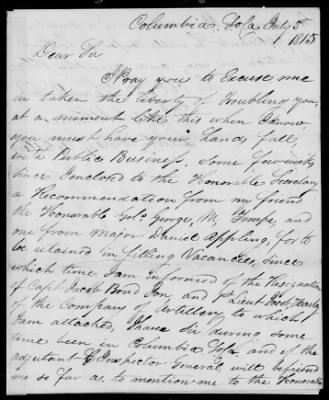 Columbia, Sola July 5th
1815
Dear Sir
I Pray you to Excuse me
in taken the liberty of troubling you,
at a moment like this when I know
you must have your hands full,
in a Public Business, Some few weeks
Since I enclosed to the Honorable Secretary
a Recommendation from my friend
the Honorable Gol. George, M, Troupe, and
one from Major Daniel Appling, for to
be retained in filling Vacancies, Since
which time I am informed of the Resignation
of Capt Jacob Bond Ion, and 1st Lieut
of the Company of Artillery to which
I am attached, I have Sir during some
time been in Columbia Sola, and if the
adjutant & Inspector General will befriend
me so far as to mention me to the Honorable